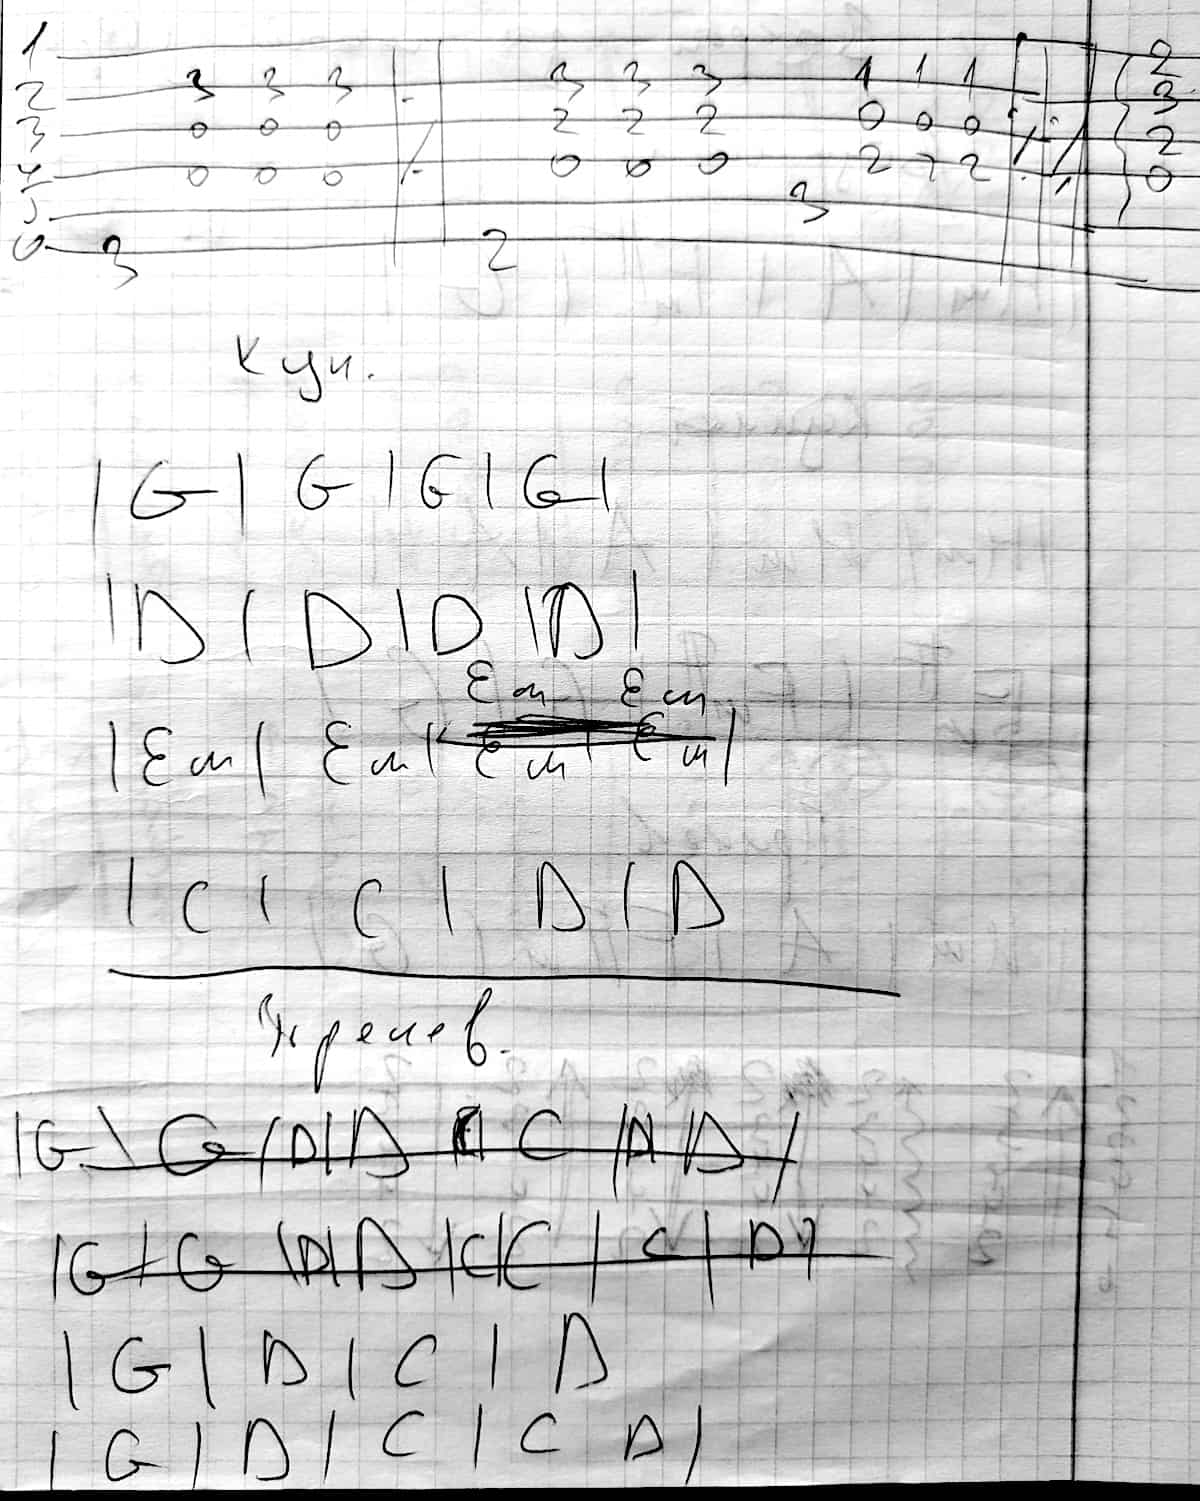 1
2 3 3 3 3 3 3 1 1 1 2
3 0 0 0 2 2 2 0 0 0 3
4 0 0 0 ⁒ 0 0 0 2 2 2 ⁒ ⁒ 2
5 3 0
6 3 2
Куп.
| G | G | G | G |
| D | D | D | D |
Em Em
| Em | Em | Em | Em |
| C | C | D | D
Припев.
| G | G | D | D | C | D | D |
| G | G | D | D | C | C | C | D |
| G | D | C | D
| G | D | C | C D |